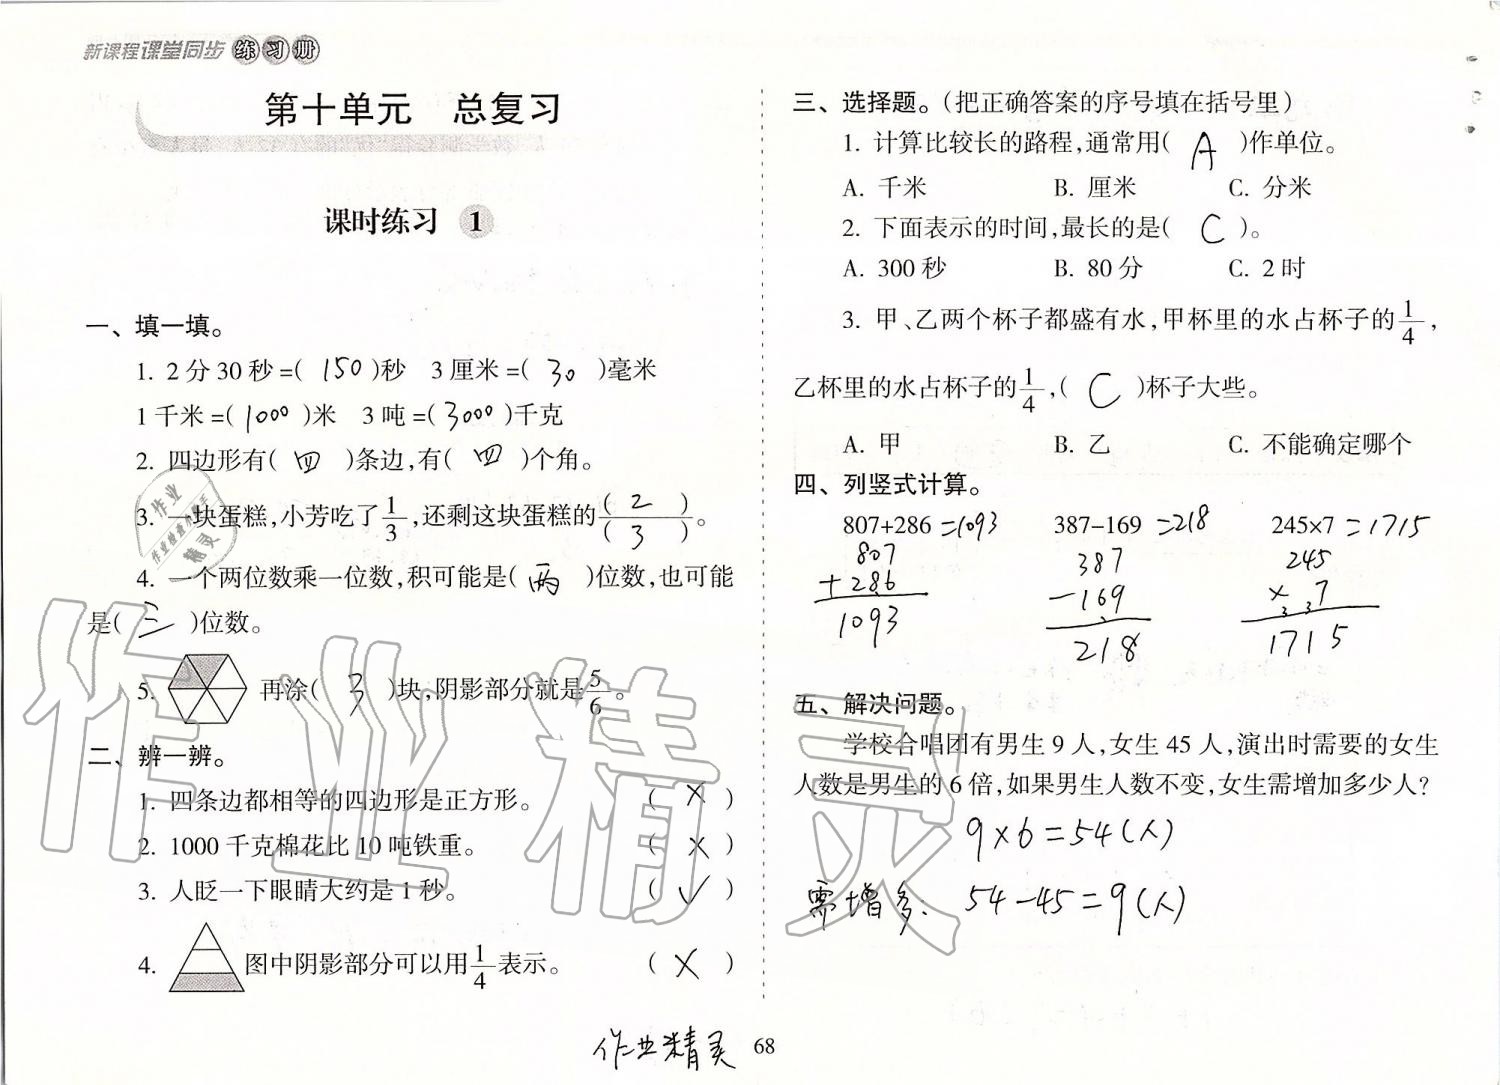 新课程课堂同步练习册
第十单元 总复习
课时练习 1
一、填一填。
1. 2分30秒=( 150 )秒 3厘米=( 30 )毫米
1千米=( 1000 )米 3吨=( 3000 )千克
2. 四边形有( 四 )条边,有( 四 )个角。
3. 一块蛋糕,小芳吃了1/3,还剩这块蛋糕的( 2 )/( 3 )。
4. 一个两位数乘一位数,积可能是( 两 )位数,也可能
是( 三 )位数。
5. 再涂( 3 )块,阴影部分就是5/6。
二、辨一辨。
1. 四条边都相等的四边形是正方形。 ( × )
2. 1000千克棉花比10吨铁重。 ( × )
3. 人眨一下眼睛大约是1秒。 ( √ )
4. 图中阴影部分可以用1/4表示。 ( × )
三、选择题。(把正确答案的序号填在括号里)
1. 计算比较长的路程,通常用( A )作单位。
A. 千米 B. 厘米 C. 分米
2. 下面表示的时间,最长的是( C )。
A. 300秒 B. 80分 C. 2时
3. 甲、乙两个杯子都盛有水,甲杯里的水占杯子的1/4,
乙杯里的水占杯子的1/4,( C )杯子大些。
A. 甲 B. 乙 C. 不能确定哪个
四、列竖式计算。
807+286=1093 387-169=218 245×7=1715
807 387 245
+286 -169 × 7
1093 218 1715
五、解决问题。
学校合唱团有男生9人,女生45人,演出时需要的女生
人数是男生的6倍,如果男生人数不变,女生需增加多少人?
9×6=54(人)
需增多: 54-45=9(人)
作业精灵
68
作业
作业检查小帮手
精灵
作业精灵